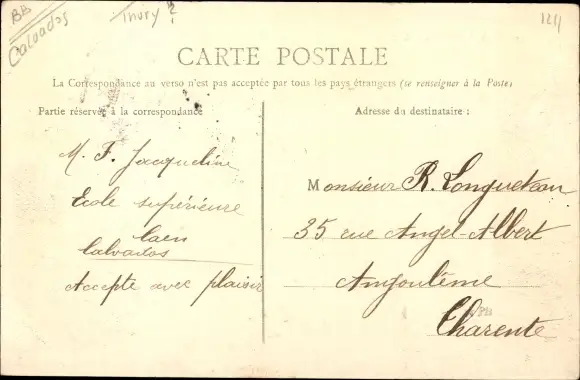 BB
Calvados
Thury ?
1211
CARTE POSTALE
La Correspondance au verso n'est pas acceptée par tous les pays étrangers (se renseigner à la Poste)
Partie réservée à la correspondance
M. F. Jacqueline
Ecole supérieure
Caen
Calvados
Accepte avec plaisir
Adresse du destinataire :
Monsieur R. Longueteau
35 rue Angel-Albert
Angoulême
Charente